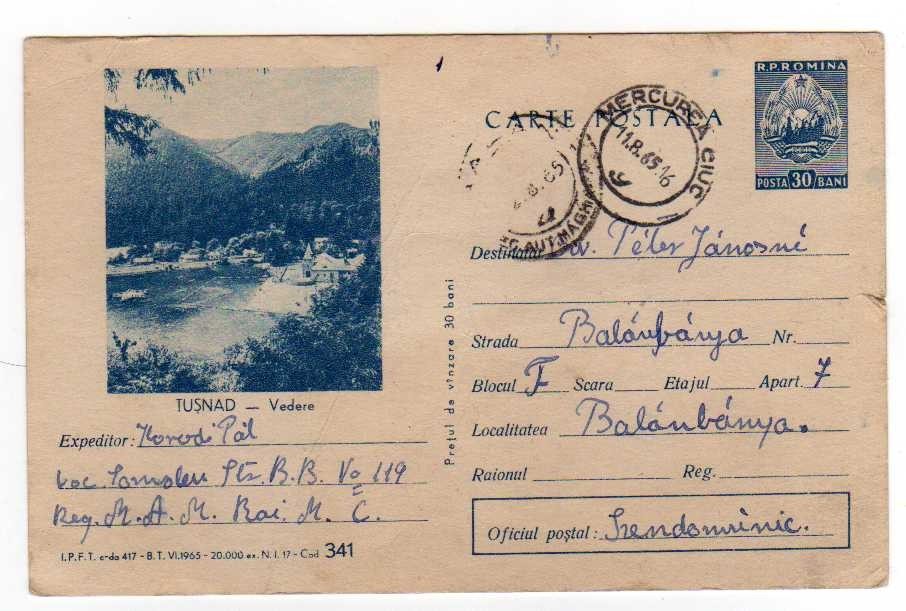 R.P.ROMINA
POSTA 30 BANI
CARTE POSTALA
MERCUREA CIUC
11.8.65 16
AUT. MAGH
TUȘNAD — Vedere
Prețul de vînzare 30 bani
Destinatar Péter Jánosné
Strada Balánbánya Nr.
Blocul F Scara Etajul Apart. 7
Localitatea Balánbánya.
Raionul Reg.
Oficiul poștal: Szendominic.
Expeditor: Korodi Pál
Loc. Str. B.B. No 119
Reg. M.A.M. Rai. M. C.
I.P.F.T. c-da 417 - B.T. VI.1965 - 20.000 ex. N.I. 17 - Cod 341